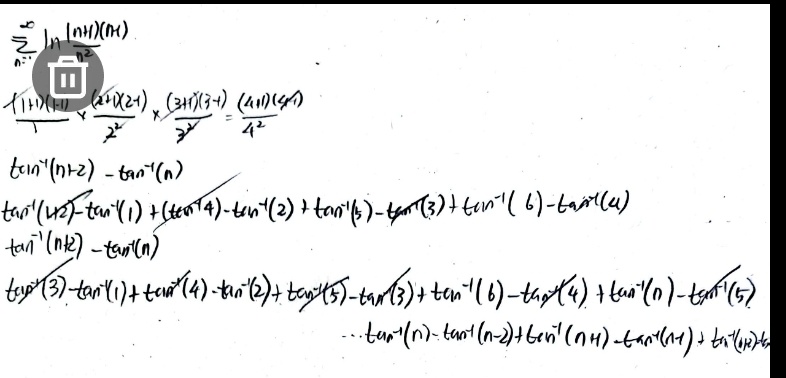 ∞
Σ ln (n+1)(n-1)
n=1 n²
(1+1)(1-1)/1 × (2+1)(2-1)/2² × (3+1)(3-1)/3² = (4+1)(4-1)/4²
tan⁻¹(n+2) - tan⁻¹(n)
tan⁻¹(1+2) - tan⁻¹(1) + (tan⁻¹4) - tan⁻¹(2) + tan⁻¹(5) - tan⁻¹(3) + tan⁻¹(6) - tan⁻¹(4)
tan⁻¹(n+2) - tan⁻¹(n)
tan⁻¹(3) - tan⁻¹(1) + tan⁻¹(4) - tan⁻¹(2) + tan⁻¹(5) - tan⁻¹(3) + tan⁻¹(6) - tan⁻¹(4) + tan⁻¹(n) - tan⁻¹(5)
...tan⁻¹(n) - tan⁻¹(n-2) + tan⁻¹(n+1) - tan⁻¹(n-1) + tan⁻¹(n+2) -